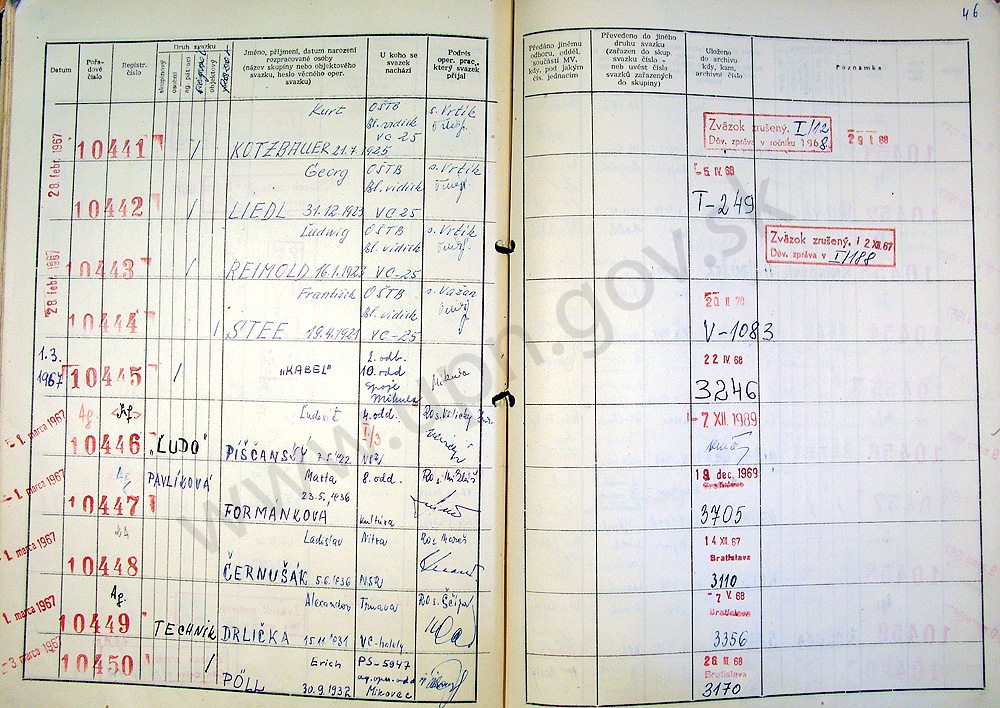 46
Datum
Pořadové číslo
Registr. číslo
Druh svazku
skupinový
osobní
ag. pátrací
objektový
Jméno, příjmení, datum narození
rozpracované osoby
(název skupiny nebo objektového
svazku, heslo věcného oper.
svazku)
U koho se
svazek
nachází
Podpis
oper. prac.,
který svazek
přijal
Předáno jinému
odboru, odděl.
součásti MV,
kdy, pod jakým
čís. jednacím
Převedeno do jiného
druhu svazku
(zařazen do skup.
svazku číslo -
neb uvést čísla
svazků zařazených
do skupiny)
Uloženo
do archivu
kdy, kam,
archivní číslo
Poznámka
28. febr. 1967
10441
/
Kurt
KOTZBAUER 21.7.1925
OŠTB
Bl. vidiek
VC 25
s. Vrtík
Zväzok zrušený. I/12
Dôv. zpráva v ročníku 1968
29 I. 68
10442
/
Georg
LIEDL 31.12.1923
OŠTB
Bl. vidiek
VC 25
s. Vrtík
-5. IV. 68
T-249
28. febr. 1967
10443
/
Ludwig
REIMOLD 16.1.1923
OŠTB
Bl. vidiek
VC-25
s. Vrtík
Zväzok zrušený. 12 XII. 67
Dôv. zpráva v I/188
10444
/
František
STEE 19.4.1921
OŠTB
Bl. vidiek
VC-25
s. Važan
20. II. 70
V-1083
1.3.
1967
10445
/
"KABEL"
2. odb.
10. odd
Spoje
Mikula
Mikula
22 IV. 68
3246
-1. marca 1967
Ag.
10446
"LUDO"
Ľudovít
PIŠČANSKÝ
4. odd.
I/3
-7. XII. 1989
-1. marca 1967
Ag
10447
PAVLÍKOVÁ
Marta
23.5.1936
FORMÁNKOVÁ
8. odd.
kultúra
19. dec. 1969
Bratislava
3705
-1. marca 1967
10448
Ladislav
ČERNUŠÁK 5.6.1936
Nitra
NSR
Ros Mareš
14 XII. 67
Bratislava
3110
1. marca 1967
Ag.
10449
TECHNIK
Alexander
DRLIČKA 15.11.1931
Trnava
-7. V. 68
Bratislava
3356
-3. marca 1967
10450
/
Erich
PÖLL
30.9.1932
PS-5947
Mikovec
26. III. 68
Bratislava
3170
www.upn.gov.sk